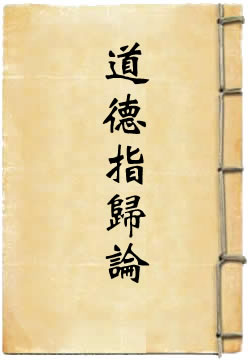 道德指歸論